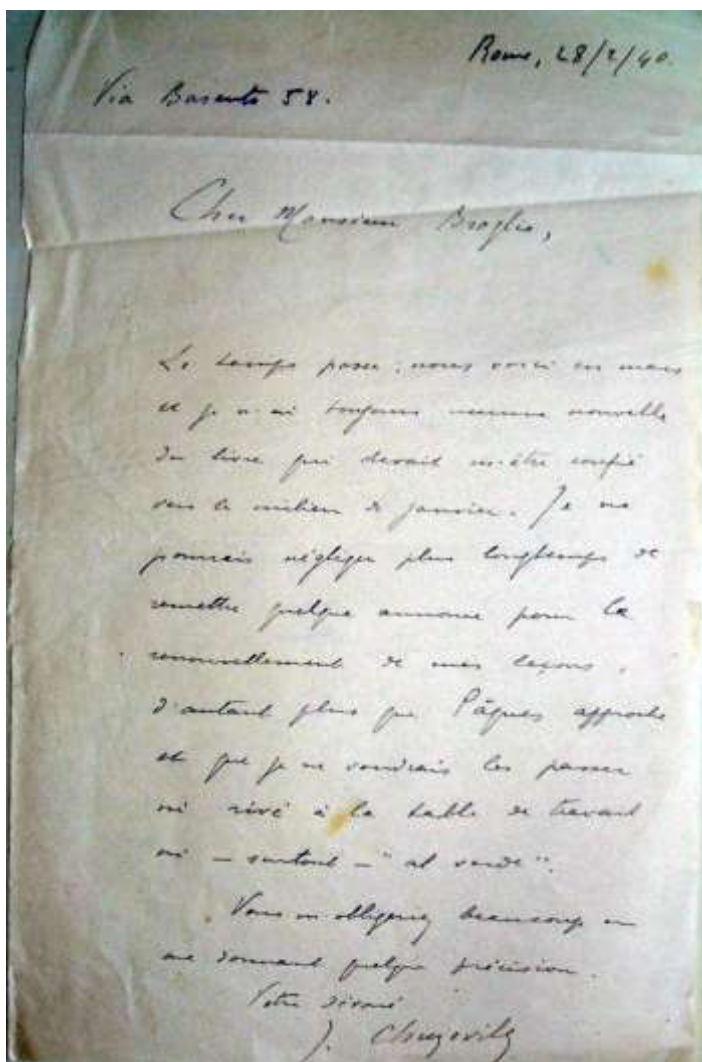 Rome, 28/2/40.
Via Basento 58.
Cher Monsieur Broglio,
Le temps passe, nous voici en mars
et je n'ai toujours aucune nouvelle
du livre qui devait m'être confié
vers le milieu de janvier. Je ne
pourrais négliger plus longtemps de
remettre quelque annonce pour le
renouvellement de mes leçons,
d'autant plus que Pâques approche
et que je ne voudrais les passer
ni rivé à la table de travail
ni — surtout — "al verde".
Vous m'obligeriez beaucoup en
me donnant quelque précision.
Votre dévoué
J. Chuzeville